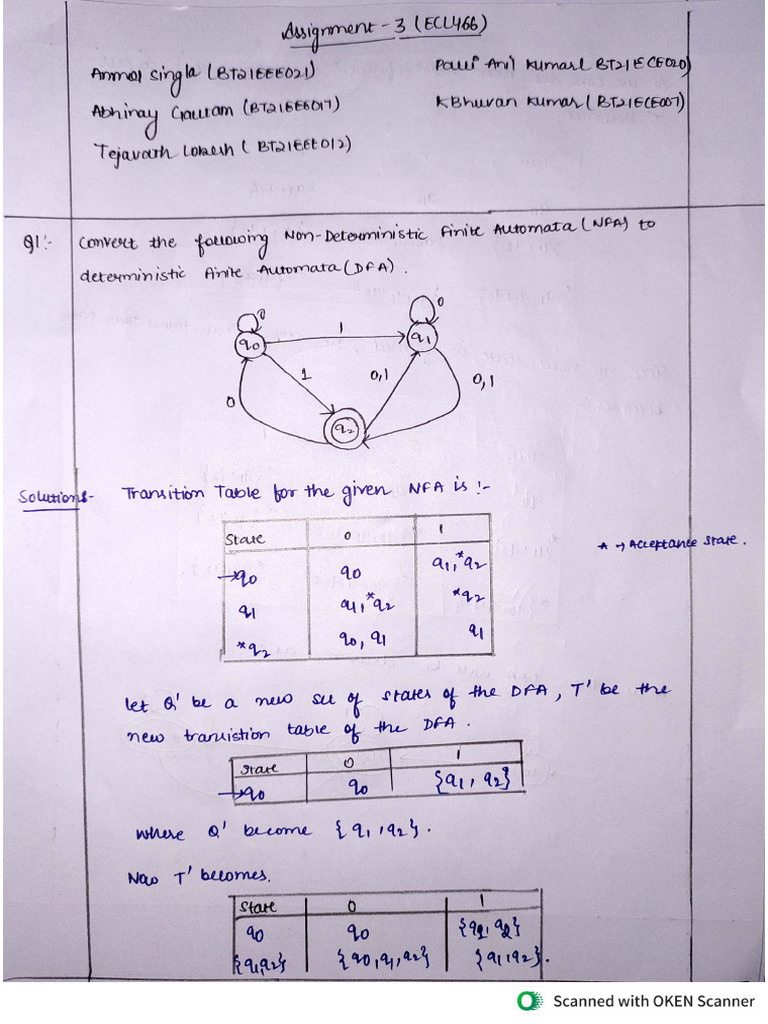 Assignment - 3 (ECL466)
Anmol Singla (BT21EEE021)
Pauli Anil Kumar (BT21ECE020)
Abhinay Gautam (BT21EEE017)
K Bhuvan Kumar (BT21ECE007)
Tejavath Lokesh (BT21EEE012)
Q1:- Convert the following Non-Deterministic Finite Automata (NFA) to
deterministic Finite Automata (DFA).
0
0
1
q0
q1
1
0,1
0,1
0
q2
Solution:- Transition Table for the given NFA is :-
State 0 1
→q0 q0 q1,*q2
* → Acceptance State.
q1 q1,*q2 *q2
*q2 q0, q1 q1
let Q' be a new set of states of the DFA, T' be the
new transistion table of the DFA.
State 0 1
→q0 q0 {q1, q2}
where Q' become {q1, q2}.
Now T' becomes.
State 0 1
q0 q0 {q1, q2}
{q1,q2} {q0,q1,q2} {q1,q2}.
Scanned with OKEN Scanner